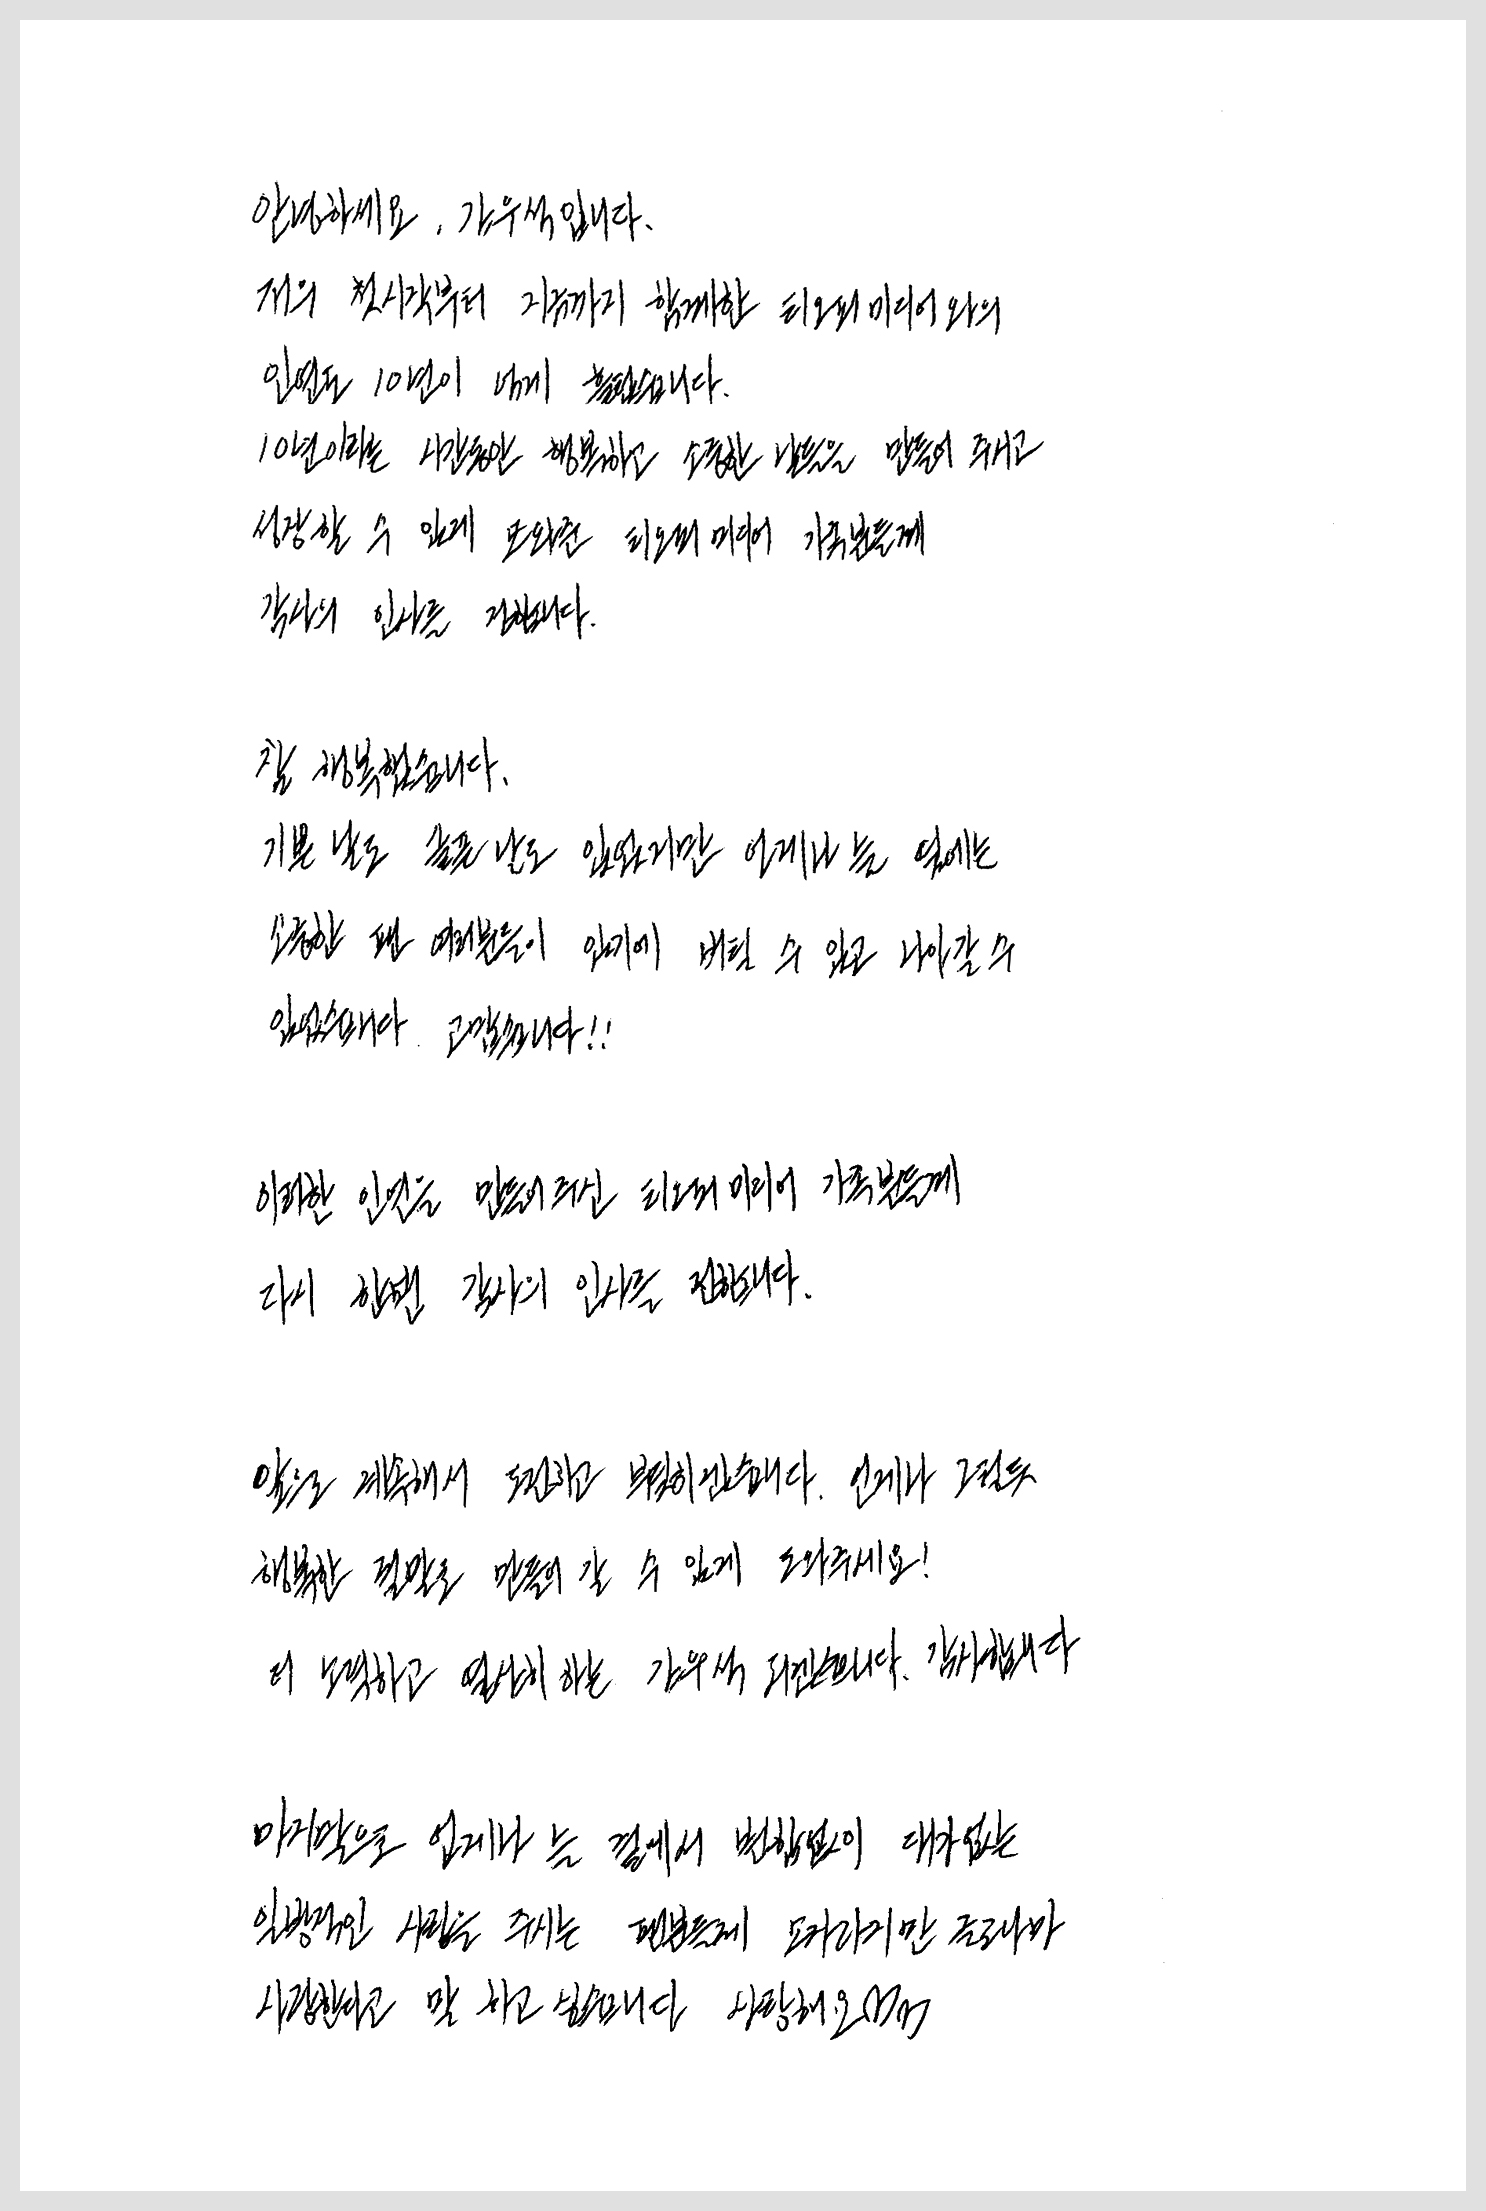 안녕하세요. 김우석입니다.
저의 첫시작부터 지금까지 함께한 티오피미디어와의
인연도 10년이 넘게 흘렀습니다.
10년이라는 시간동안 행복하고 소중한 날들을 만들어 주시고
성장할 수 있게 도와준 티오피미디어 가족분들께
감사의 인사를 전합니다.
참 행복했습니다.
기쁜 날도 슬픈 날도 있었지만 언제나 늘 옆에는
소중한 팬 여러분들이 있기에 버틸 수 있고 나아갈 수
있었습니다. 고맙습니다!!
이러한 인연을 만들어주신 티오피미디어 가족분들께
다시 한번 감사의 인사를 전합니다.
앞으로 계속해서 도전하고 부딪히겠습니다. 언제나 그렇듯
행복한 결말로 만들어 갈 수 있게 도와주세요!
더 노력하고 열심히 하는 김우석 되겠습니다. 감사합니다
마지막으로 언제나 늘 곁에서 변함없이 대가없는
일방적인 사랑을 주시는 팬분들께 모자라지만 조금이나마
사랑한다고 말 하고 싶습니다 사랑해요